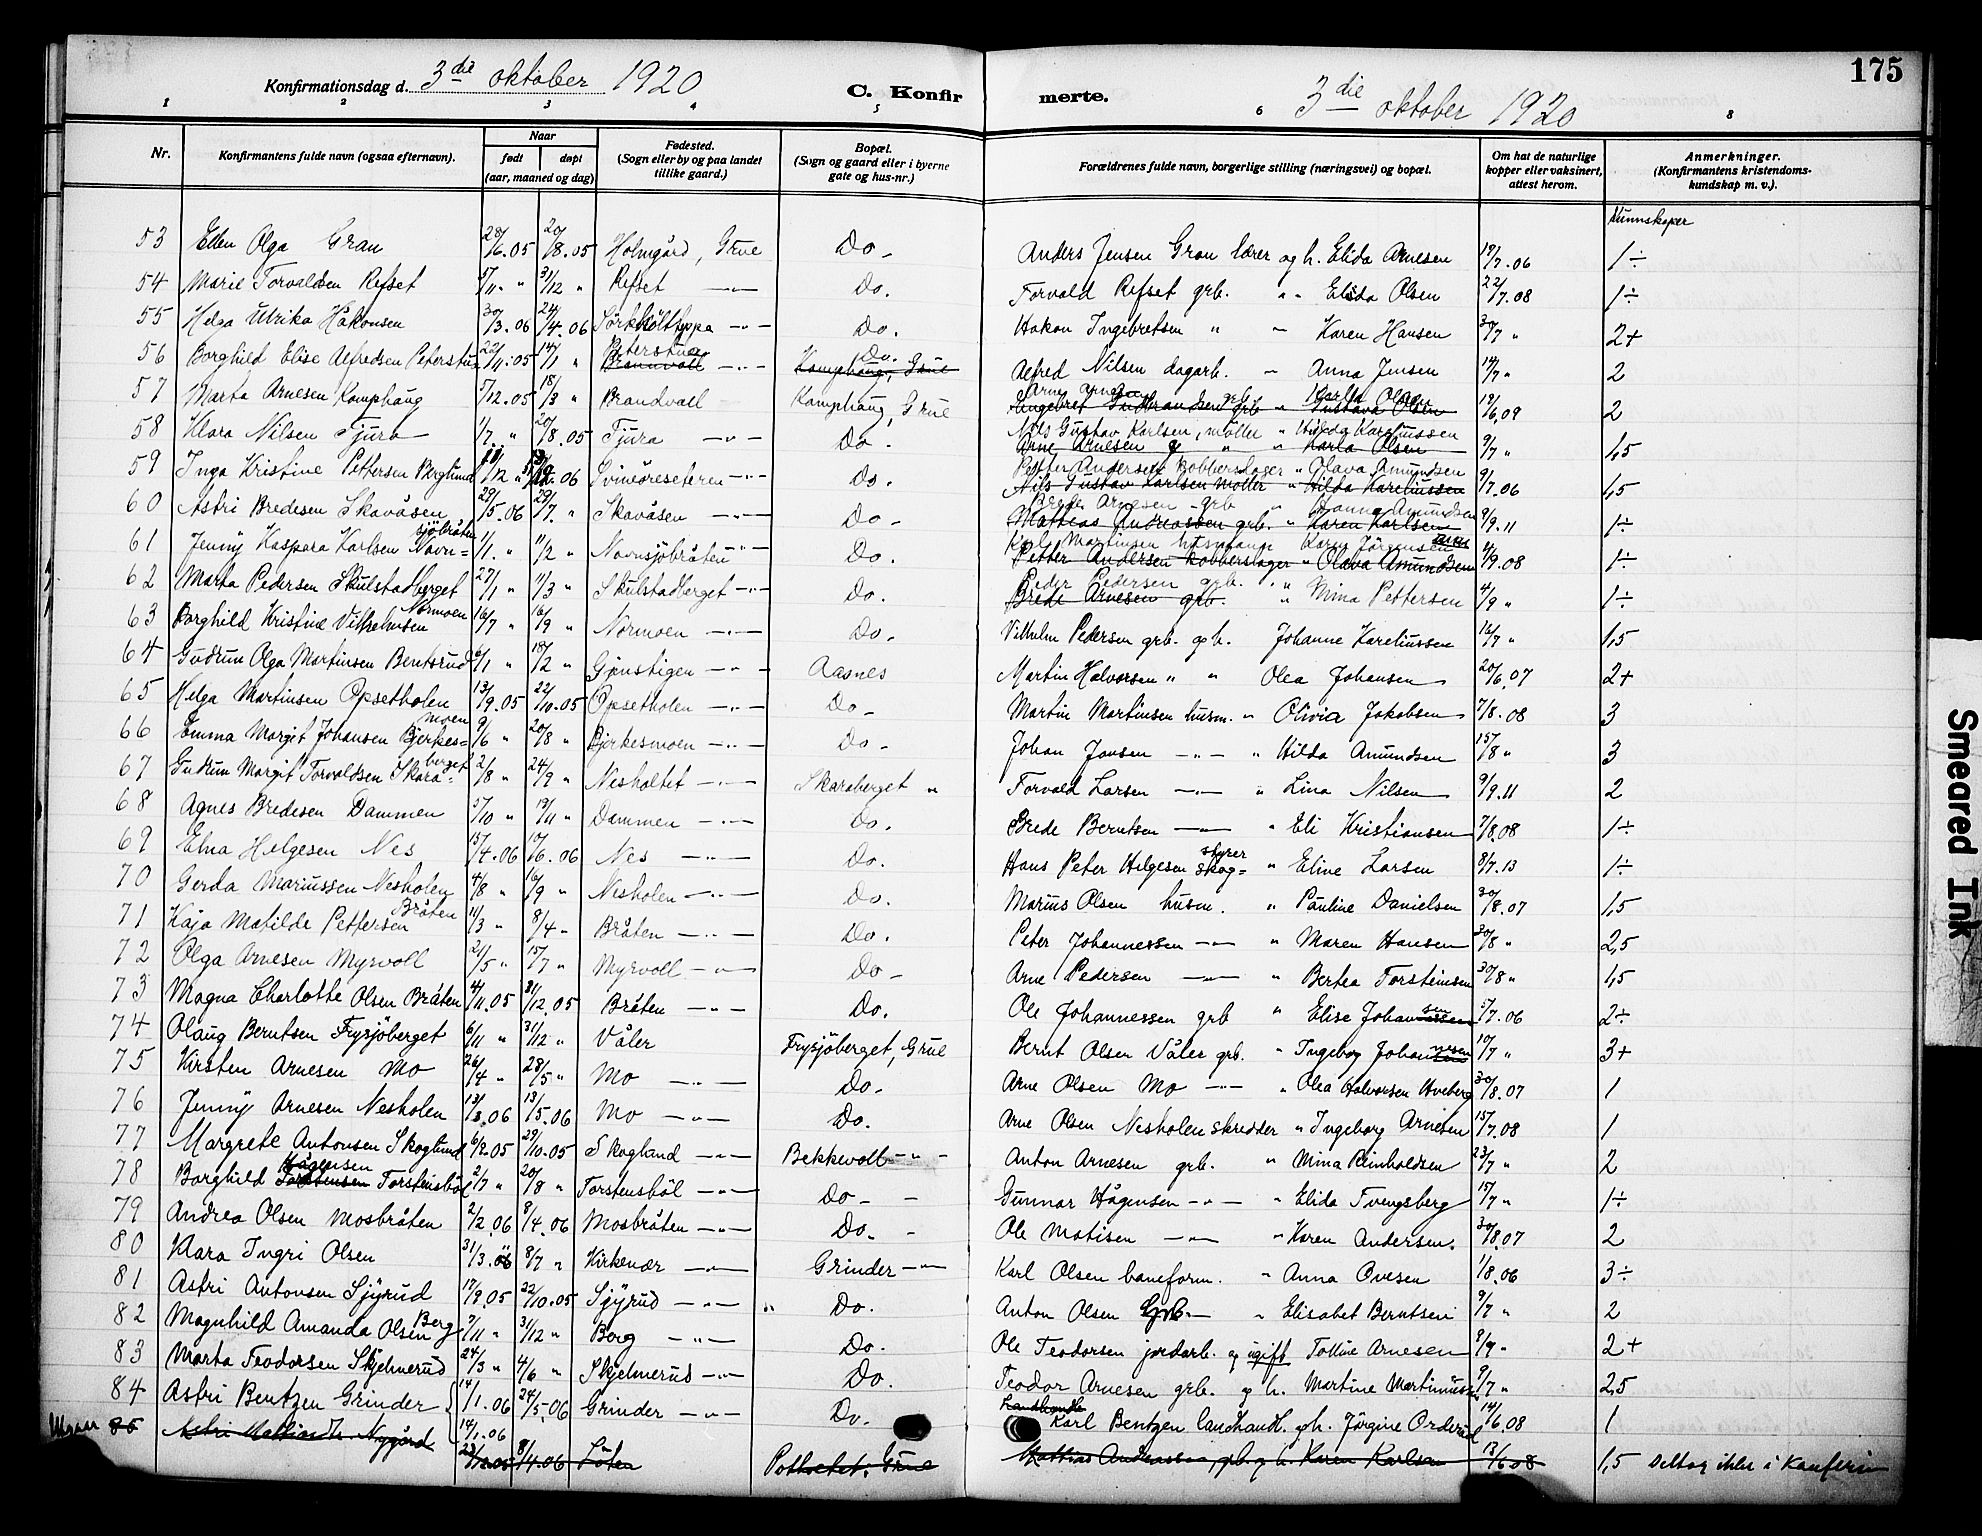 175
Konfirmationsdag d. 3die oktober 1920 C. Konfir
merte. 3die oktober 1920
1 2 3 4 5 6 8
Nr. Konfirmantens fulde navn (ogsaa efternavn). Naar født døpt (aar, maaned og dag) Fødested. (Sogn eller by og paa landet tillike gaard.) Bopæl. (Sogn og gaard eller i byerne gate og hus-nr.) Forældrenes fulde navn, borgerlige stilling (næringsvei) og bopæl. Om hat de naturlige kopper eller vaksinert, attest herom. Anmerkninger. (Konfirmantens kristendomskundskap m. v.).
Kunnskaper
53 Ellen Olga Gran 28/6.05 20/8.05 Holmgård, Grue Do. Anders Jensen Gran lærer og h. Elida Arnesen 19/7.06 1÷
54 Marie Torvaldsen Refset 5/11 " 31/12 " Refset —"— Do. Torvald Refset grb. " " Elida Olsen 22/7.08 1÷
55 Helga Ulrika Håkonsen 30/3.06 24/4.06 —"— Do. Hakon Ingebretsen " — Karen Hansen 30/7 " 2+
56 Borghild Elise Alfredsen Peterstue 22/11.05 14/1 " Peterstue Brannvoll —"— Do. Kamphaug, Grue Alfred Nilsen dagarb. — Anna Jensen 14/7 " 2
57 Marta Arnesen Kamphaug 5/12.05 18/3 " Brandvall Kamphaug, Grue Arne Arnesen grb. Karla Olsen Gustava Olsen 19/6.09 2
58 Klara Nilsen Tjura 1/7 " 20/8.05 Tjura —"— Do. Nils Gustav Karlsen, møller " Hilda Kareliussen Arne Arnesen " " Karla Olsen 9/7 " 1,5
59 Inga Kristine Pettersen Berglund Svinöreseteren —"— Do. Petter Andersen Kobberslager " Olava Amundsen Nils Gustav Karlsen møller " Hilda Kareliussen 9/7.06 1,5
60 Astri Bredesen Skavåsen 29/5.06 29/7 " Skavåsen —"— Do. Brede Arnesen grb. " Amundsen Mattias Andreassen grb. " Karen Karlsen 9/9.11 1÷
61 Jenny Kaspara Karlsen Navnsjöbråten 1/1 " 11/2 " Navnsjöbråten " Do. Karl Martinsen husmann Karen Jörgensen Petter Andersen kobberslager " Olava Amundsen 4/9.08 1÷
62 Marta Pedersen Skulstadberget 27/1 " 11/3 " Skulstadberget —"— Do. Peder Pedersen grb. " Brede Arnesen grb. " Mina Pettersen 4/9 " 1÷
63 Borghild Kristine Vilhelmsen Normoen 16/7 " 16/9 " Normoen —"— Do. Vilhelm Pedersen grb. og h. Johanne Kareliussen 16/7 " 1,5
64 Gudrun Olga Martinsen Bentsrud 6/1 " 18/2 " Gjenstigen —"— Aasnes Martin Halvorsen " " Olea Johansen 20/6.07 2+
65 Helga Martinsen Opsetholen 13/9.05 22/10.05 Opsetholen —"— Do. Martin Martinsen husm. " Olivia Jakobsen 7/8.08 3
66 Emma Margit Johansen Bjerkesmoen 9/6 " 20/8 " Bjerkesmoen —"— Do. Johan Jansen —"— " Hilda Amundsen 15/8 " 3
67 Gudrun Margit Torvaldsen Skaraberget 2/8 " 24/9 " Nesholtet —"— Skaraberget " Torvald Larsen —"— " Lina Nilsen 9/9.11 2
68 Agnes Bredesen Dammen 5/10 " 19/11 " Dammen —"— Do. Brede Berntsen —"— " Eli Kristiansen 7/8.08 1÷
69 Elna Helgesen Nes 15/4.06 10/6.06 Nes —"— Do. Hans Peter Helgesen skogstyrer " Eline Larsen 8/7.13 1÷
70 Gerda Mariussen Nesholen 4/8 " 16/9 " Nesholen —"— Do. Marius Olsen husm. " Pauline Danielsen 30/8.07 1,5
71 Kaja Matilde Pettersen Bråten 11/3 " 8/4 " Bråten —"— Do. Peter Johannessen —"— " Maren Hansen 30/8 " 2,5
72 Olga Arnesen Myrvoll 21/5 " 15/7 " Myrvoll —"— Do. Arne Pedersen —"— " Bertea Torsteinsen 30/8 " 1,5
73 Magna Charlotte Olsen Bråten 4/11.05 31/12.05 Bråten —"— Do. Ole Johannessen grb " Elise Johansen 5/7.06 2÷
74 Olaug Berntsen Frysjöberget 6/11 " 31/12 " Våler Frysjöberget, Grue Bernt Olsen Våler grb. " Ingeborg Johannesen 10/7 " 3+
75 Kirsten Arnesen Mo 26/4 " 28/5 " Mo —"— Do. Arne Olsen Mo —"— " Olea Halvorsen Hveberg 30/8.07 1
76 Jenny Arnesen Nesholen 13/3.06 13/5.06 Mo —"— Do. Arne Olsen Nesholen skredder " Ingeborg Arnesen 15/7.08 1
77 Margrete Antonsen Skoglund 6/2.05 29/10.05 Skogland —"— Bekkevoll —"— Anton Arnesen grb. " Mina Reinholdsen 23/7 " 2
78 Borghild Hågensen Torstensen Torstensböl 2/7 " 20/8 " Torstensböl —"— Do. — Gunnar Hågensen —"— " Elida Tvengsberg 15/7 " 1÷
79 Andrea Olsen Mosbråten 2/2.06 8/4.06 Mosbråten —"— Do. — Ole Matisen —"— " Karen Andersen. 30/8.07 2
80 Klara Ingri Olsen 31/3.06 8/7 " Kirkenær —"— Grinder —"— Karl Olsen baneform. " Anna Ovesen 1/8.06 3÷
81 Astri Antonsen Sjyrud 17/9.05 22/10.05 Sjyrud —"— " Do. Anton Olsen Grb. — " Elisabet Berntsen 9/7 " 2
82 Magnhild Amanda Olsen Berg 7/11 " 31/12 " Berg —"— Do. Ole Teodorsen jordarb. og ugift Tolline Arnesen 8/9 " 2+
83 Marta Teodorsen Skjelmerud 24/3 " 4/6 " Skjelmerud —"— Do. Teodor Arnesen grb. og h. Martine Martiniussen 9/7 " 2,5
84 Astri Bentzen Grinder 14/1.06 24/5.06 Grinder —"— Do. Landhandle Karl Bentzen landhandl. og h. Jörgine Orderud 14/6.08 1
85 Astri Nygård 14/1.06 8/4.06 Löten Pottoetet, Grue Mattias Andreassen, grb. og h. Karen Karlsen 13/6.08 1,5 Deltog ikke i Konferin
Smeared Ink